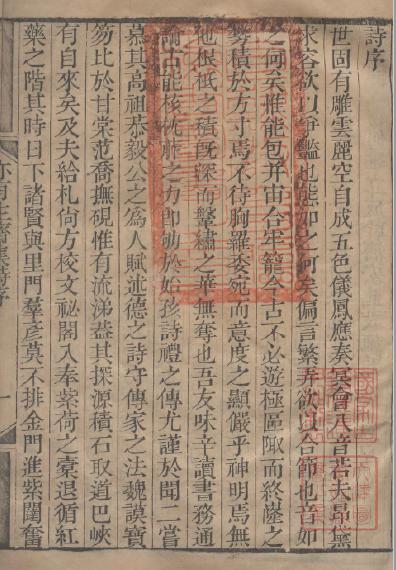 詩序
世固有雕雲麗空自成五色儀鳳應奏冥會八音若夫昂黛
求容欲以爭豔也態如之何矣偏言繁弄欲以合節也音如
之何矣惟能包并宙合牢籠今古不必遊極區陬而終壑之
夢積於方寸焉不待胸羅委宛而意度之顯儼乎神明焉無
他根柢之積旣深而鞶繡之華無奪也吾友味辛讀書務通
論古能核枕胙之力卽劬於始孩詩禮之傳尤謹於聞二嘗
慕其高祖恭毅公之爲人賦述德之詩守傳家之法魏謨寶
笏比於甘棠范喬撫硯惟有流涕葢其探源積石取道巴峽
有自來矣及夫給札尙方校文祕閣入奉紫荷之橐退循紅
藥之階其時日下諸賢與里門羣彥莫不排金門淮紫闥奮
亦有生齋集詩序
一